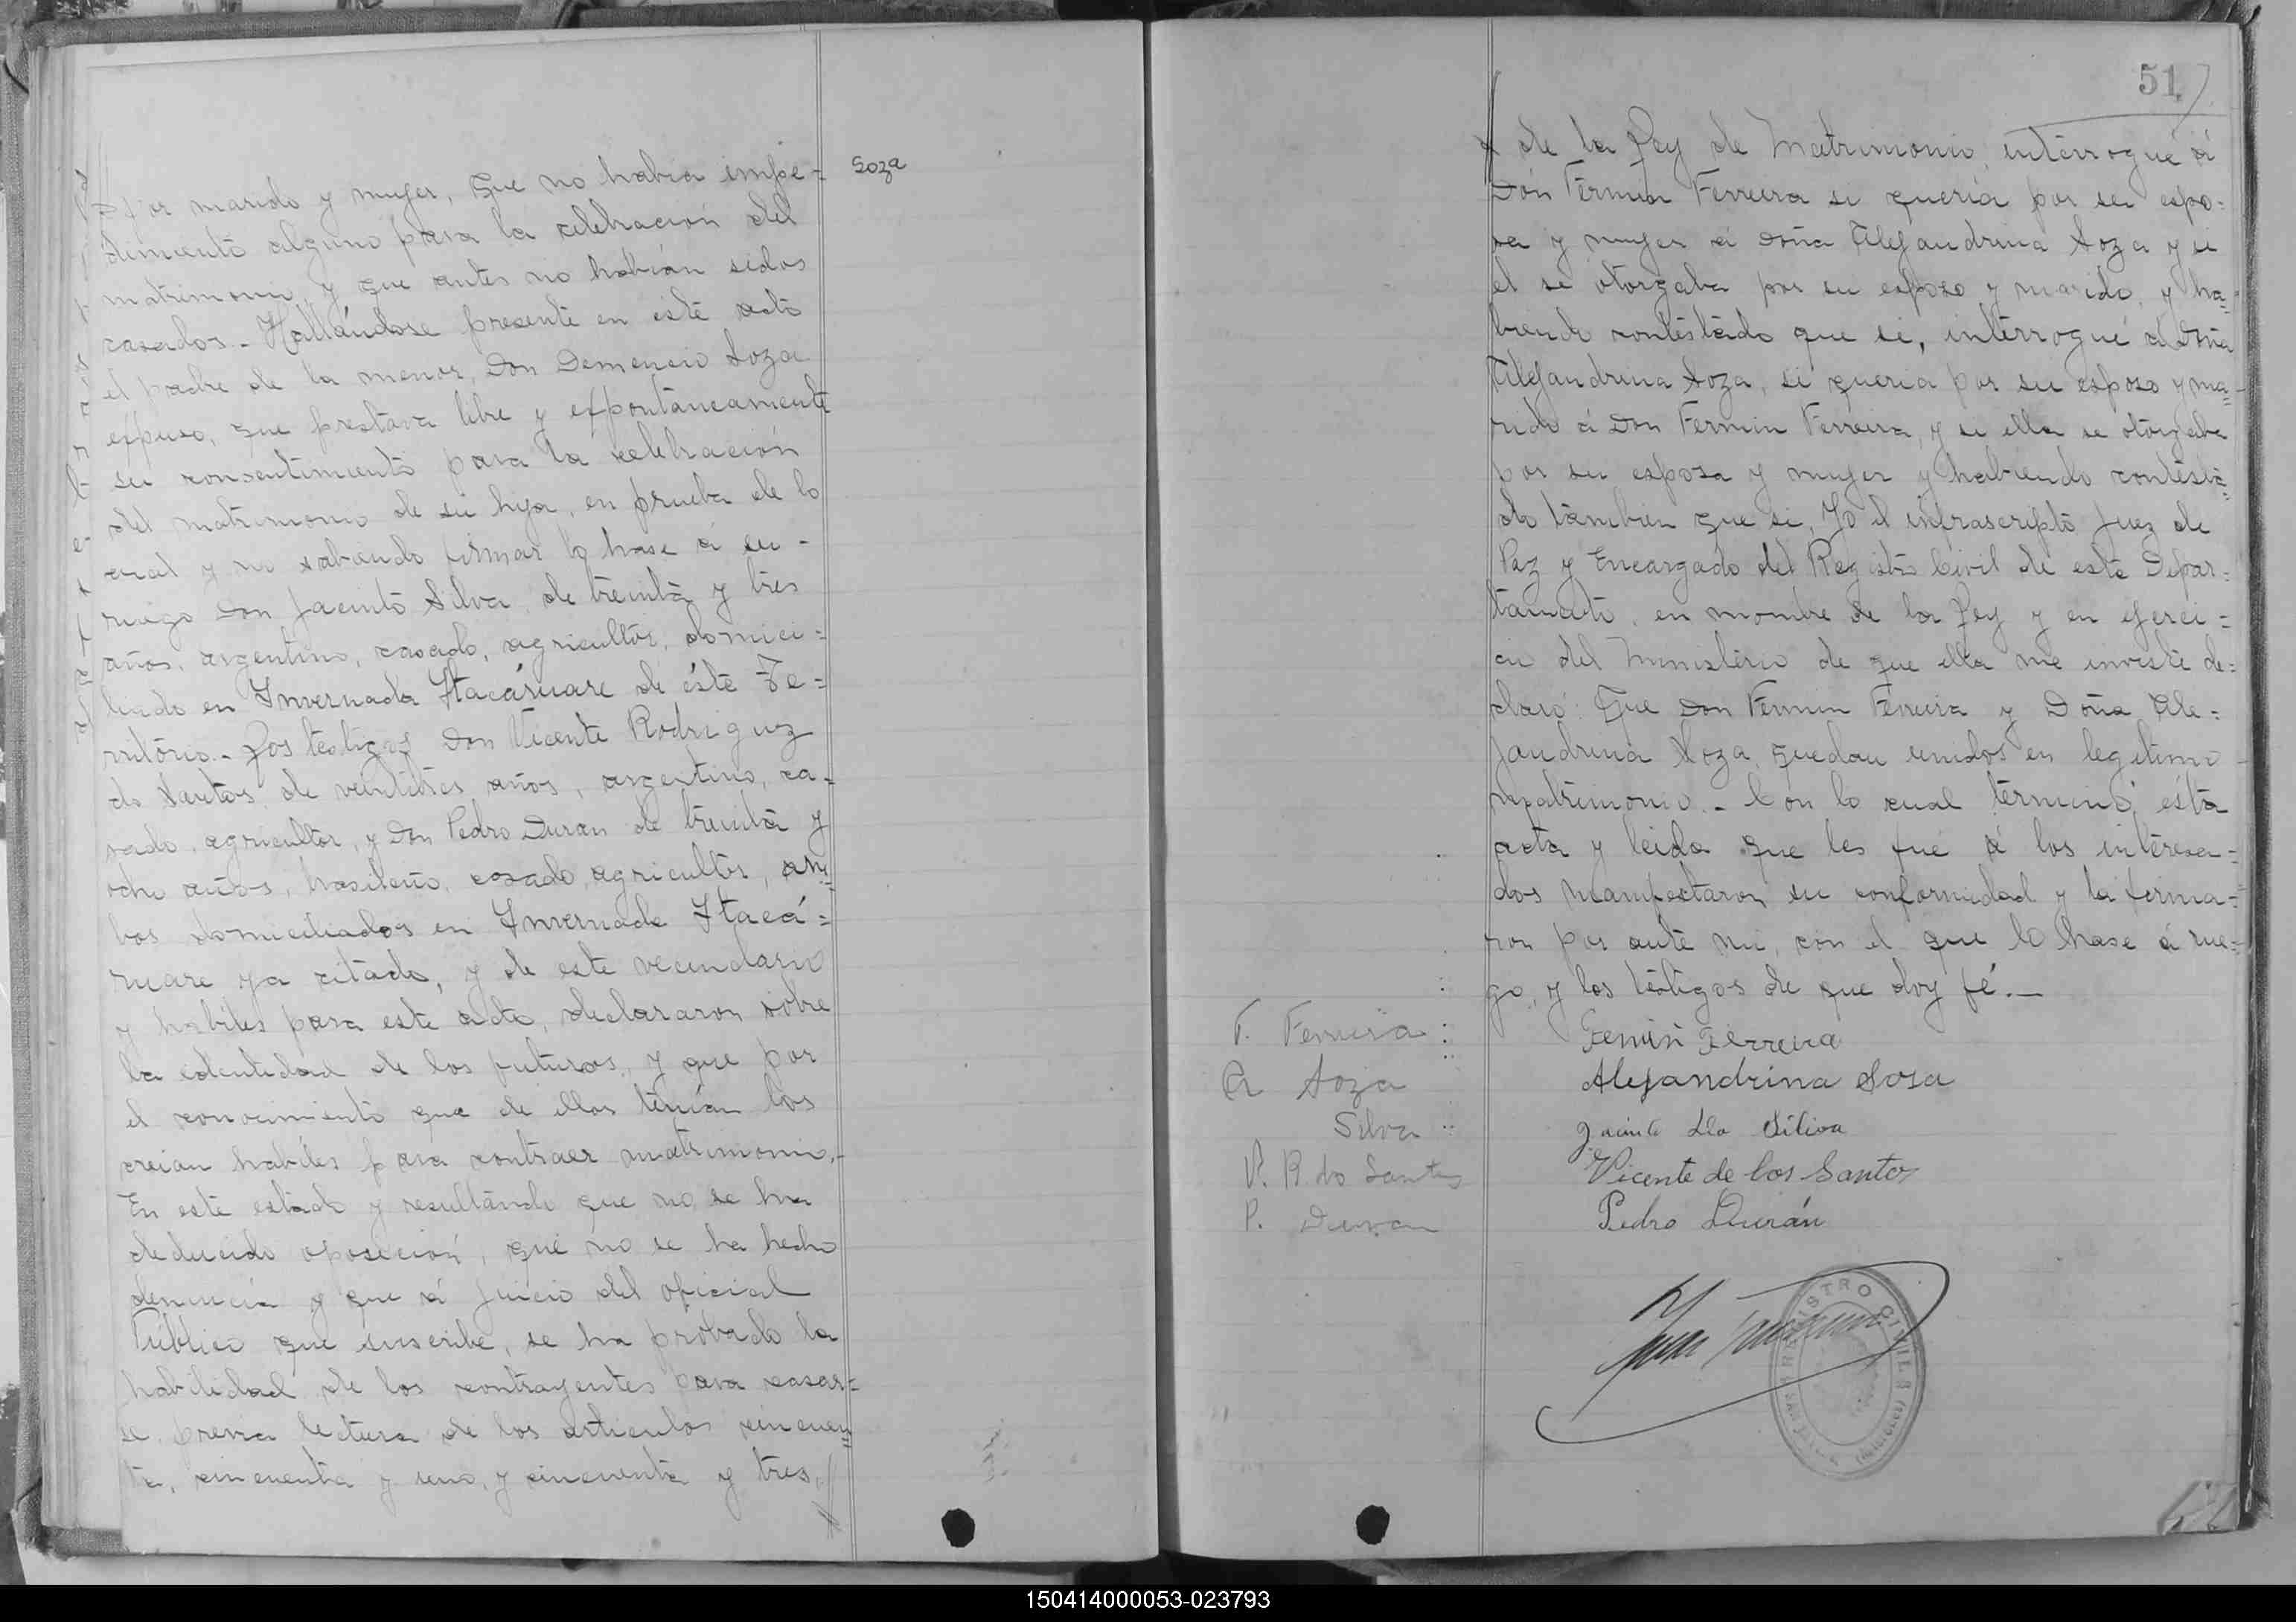 por marido y mujer, que no habia impe=
dimento alguno para la celebración del
matrimonio, y que antes no habían sidos
casados.- Hallándose presente en este acto
el padre de la menor, Don Demencio Soza
expuso, que prestava libre y expontáneamente
su consentimiento para la celebración
del matrimonio de su hija, en prueba de lo
cual y no sabiendo firmar lo hase á su -
ruego Don Jacinto Silva, de treinta y tres
años, argentino, casado, agricultor, domici=
liado en Invernada Itacáruare de éste Te=
rritório.- Los testigos Don Vicente Rodriguez
do Santos, de veintitres años, argentino, ca-
sado, agricultor, y Don Pedro Duran de treinta y
ocho años, brasileño, casado, agricultor, am=
bos domiciliados en Invernada Itacá=
ruare ya citado, y de este vecindario
y habiles para este acto, declararon sobre
la identidad de los futuros, y que por
el conocimiento que de ellos tenían los
creian habiles para contraer matrimonio.-
En este estado y resultando que no se ha
deducido oposición, que no se ha hecho
denuncia y que á juicio del oficial
Público que suscribe, se ha probado la
habilidad de los contrayentes para casar=
se, previa lectura de los articulos cincuen=
ta, cincuenta y uno, y cincuenta y tres,
Soza
51
de la Ley de Matrimonio, interrogué á
Don Fermin Ferreira si quería por su espo=
sa y mujer á Doña Alejandrina Soza y si
él se otorgaba por su esposo y marido, y ha=
biendo contestado que si, interrogué á Doña
Alejandrina Soza, si queria por su esposo y ma=
rido á Don Fermin Ferreira, y si ella se otorgaba
por su esposa y mujer y habiendo contesta=
do tambien que si, Yo el infrascripto Juez de
Paz y Encargado del Registro Civil de este Depar=
tamento, en nombre de la Ley y en ejerci=
cio del Ministerio de que ella me inviste de=
claró: Que Don Fermin Ferreira y Doña Ale=
jandrina Soza, quedan unidos en legitimo
matrimonio.- Con lo cual terminó ésta
acta y leida que les fué á los interesa=
dos manifestaron su conformidad y la firma=
ron por ante mi, con el que lo hase á rue=
go, y los testigos de que doy fé.-
F. Ferreira
Fermin Ferreira
A Soza
Alejandrina Sosa
Silva
Jacinto Da Silva
V. R do Santos
Vicente de los Santos
P. Duran
Pedro Durán
REGISTRO CIVIL
150414000053-023793